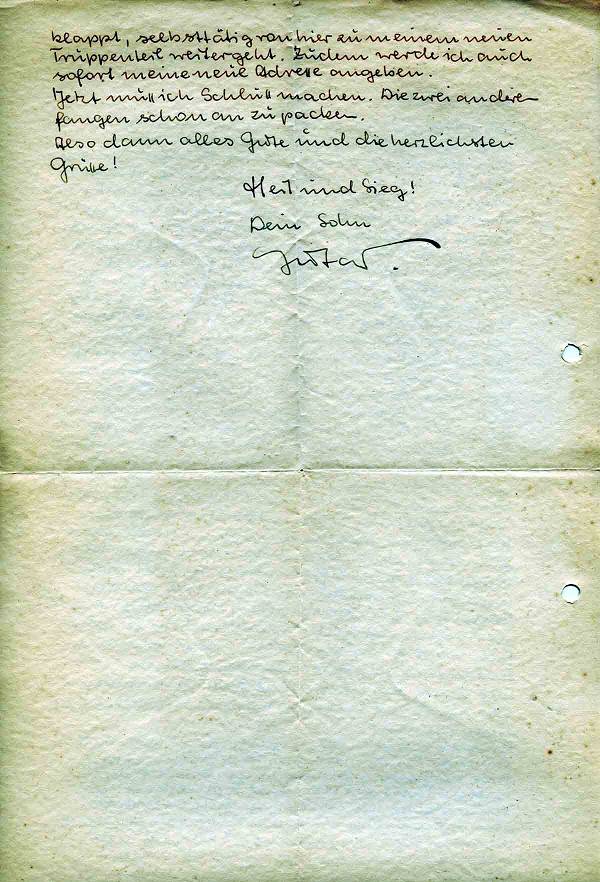 klappt, selbsttätig von hier zu meinem neuen
Truppenteil weitergeht. Zudem werde ich auch
sofort meine neue Adresse angeben.
Jetzt muß ich Schluß machen. Die zwei andere
fangen schon an zu packen.
Also dann alles Gute und die herzlichsten
Grüße!
Heil und Sieg!
Dein Sohn
Gustav.